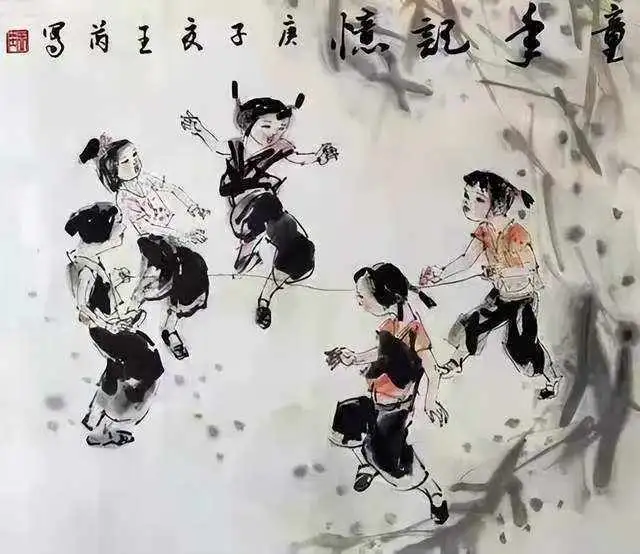 童年記憶 庚子夏王芮寫